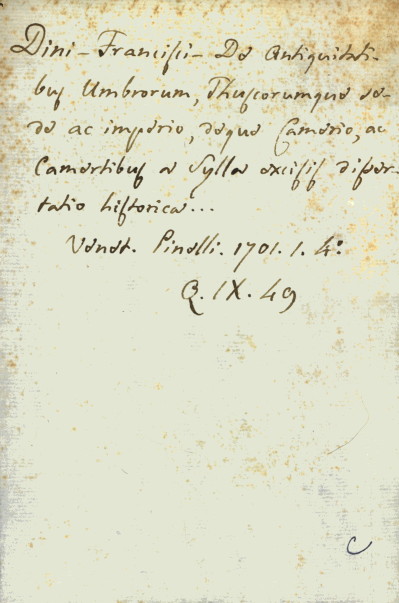 Dini - Francisci - De Antiquitati-
bus Umbrorum, Thuscorumque se-
de ac imperio, deque Camerio, ac
Camertibus a Sylla excisis disser-
tatio historica...
Venet. Pinelli. 1701. 1. 4.º
Q. IX. 49
C